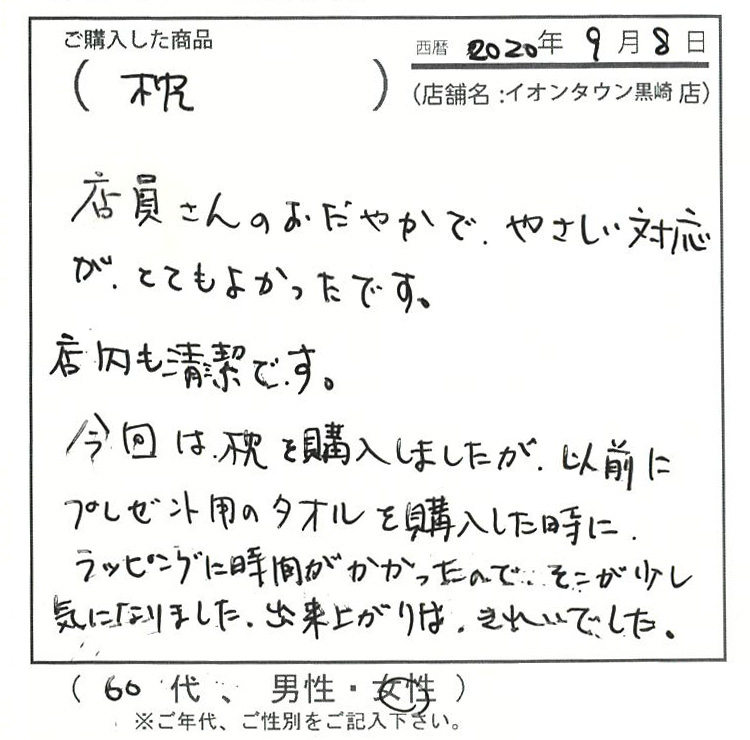 ご購入した商品
西暦 2020年 9月 8日
( 枕 )
(店舗名:イオンタウン黒崎 店)
店員さんのおだやかで、やさしい対応
が、とてもよかったです。
店内も清潔です。
今回は、枕を購入しましたが、以前に
プレゼント用のタオルを購入した時に、
ラッピングに時間がかかったので、そこが少し
気になりました、出来上がりは、きれいでした。
( 60 代、 男性・女性 )
※ご年代、ご性別をご記入下さい。